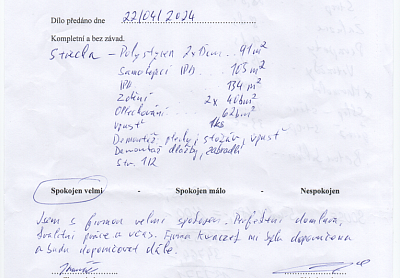 Dílo předáno dne 22/04/2024
Kompletní a bez závad.
Střecha - Polystyren 2x15cm.. 91m²
Samolepící IPA .. 103m²
IPA 134m²
Zdění 2x 40bm²
Oplechování .... 62bm²
Vpusť 1ks
Demontáž plechy, stožár, vpusť
Demontáž dlažby, zábradlí
Str. 1/2
Spokojen velmi - Spokojen málo - Nespokojen
Jsem s firmou velmi spokojen. Perfektní domluva,
kvalitní práce a včas. Firma mi byla doporučena
a budu doporučovat dále.